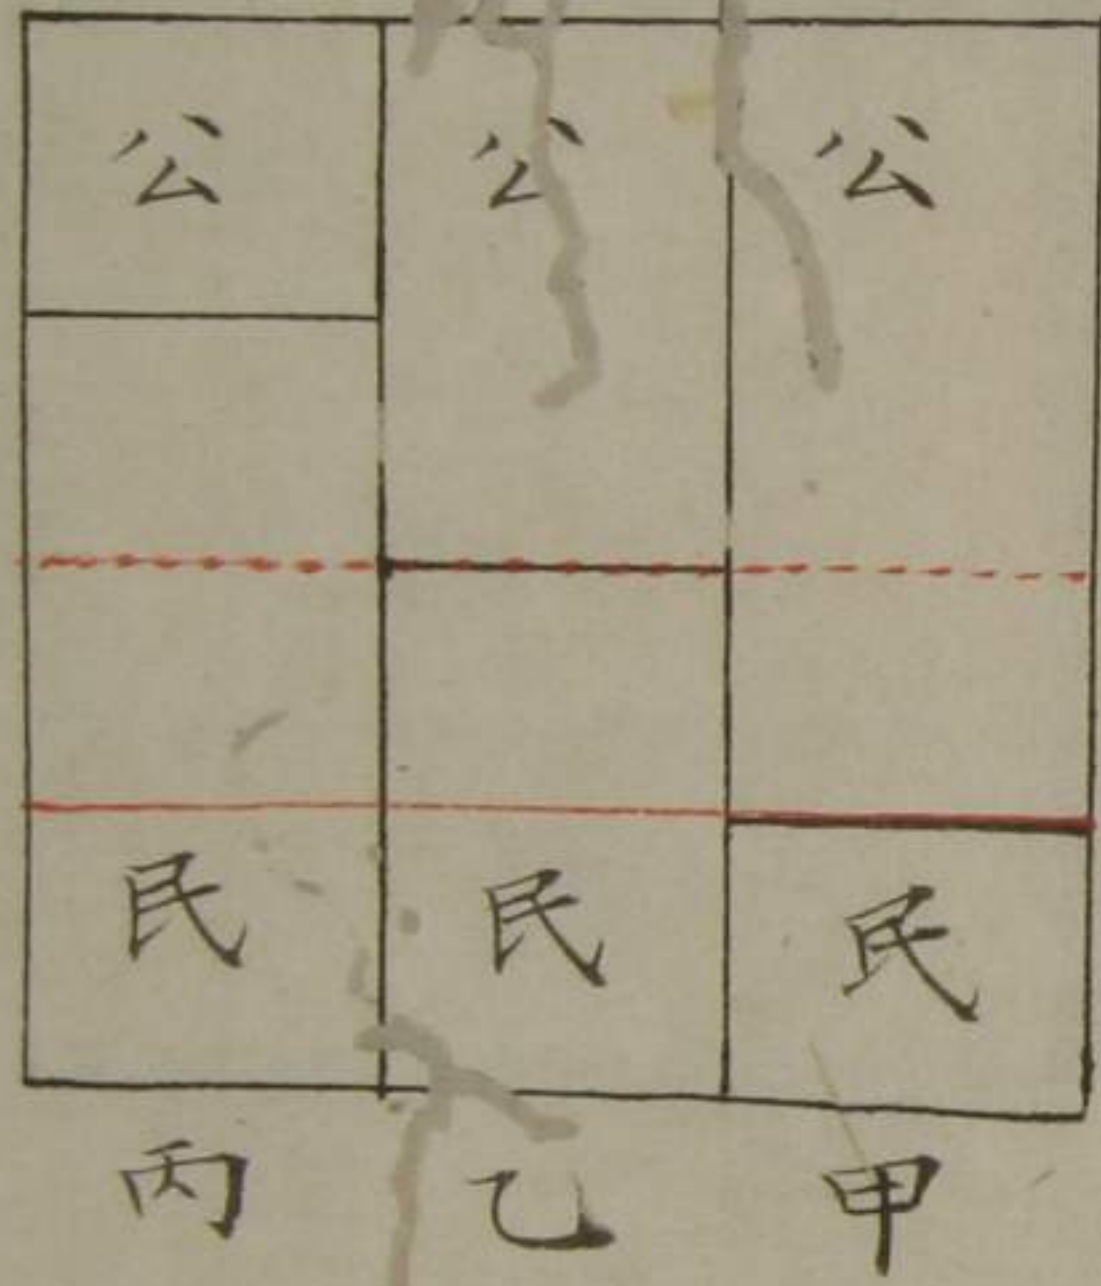 公 公 公
民 民 民
丙 乙 甲